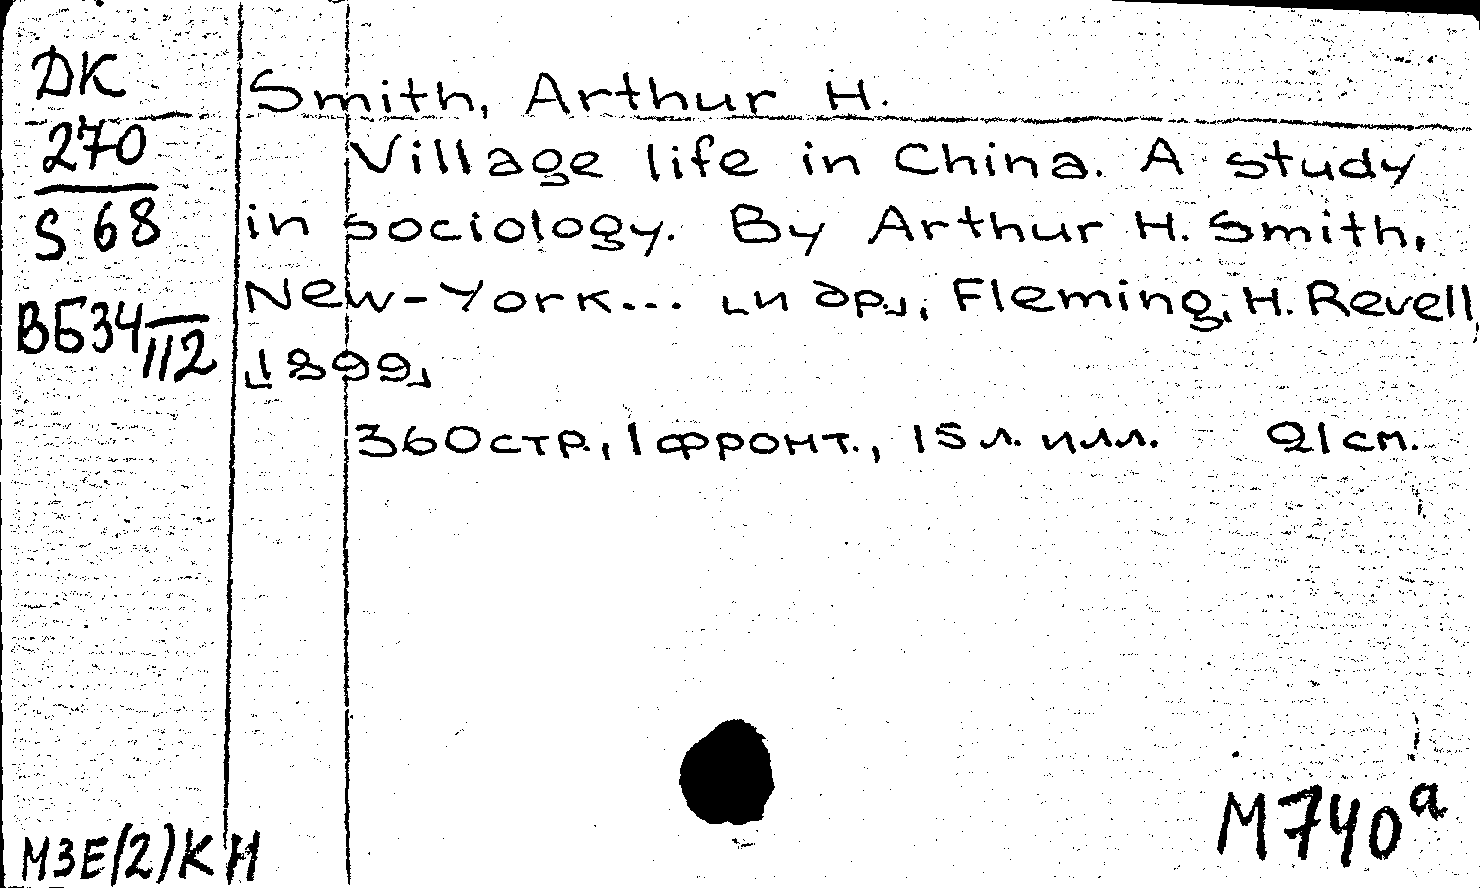 ДК
270
S 68
ВБ34—
112
Smith, Arthur H.
Village life in China. A study
in sociology. By Arthur H. Smith,
New-York... [и др.], Fleming, H. Revell,
[1899]
360стр., 1 фронт., 15 л. илл. 21 см.
МЗЕ(2)КН
М740а